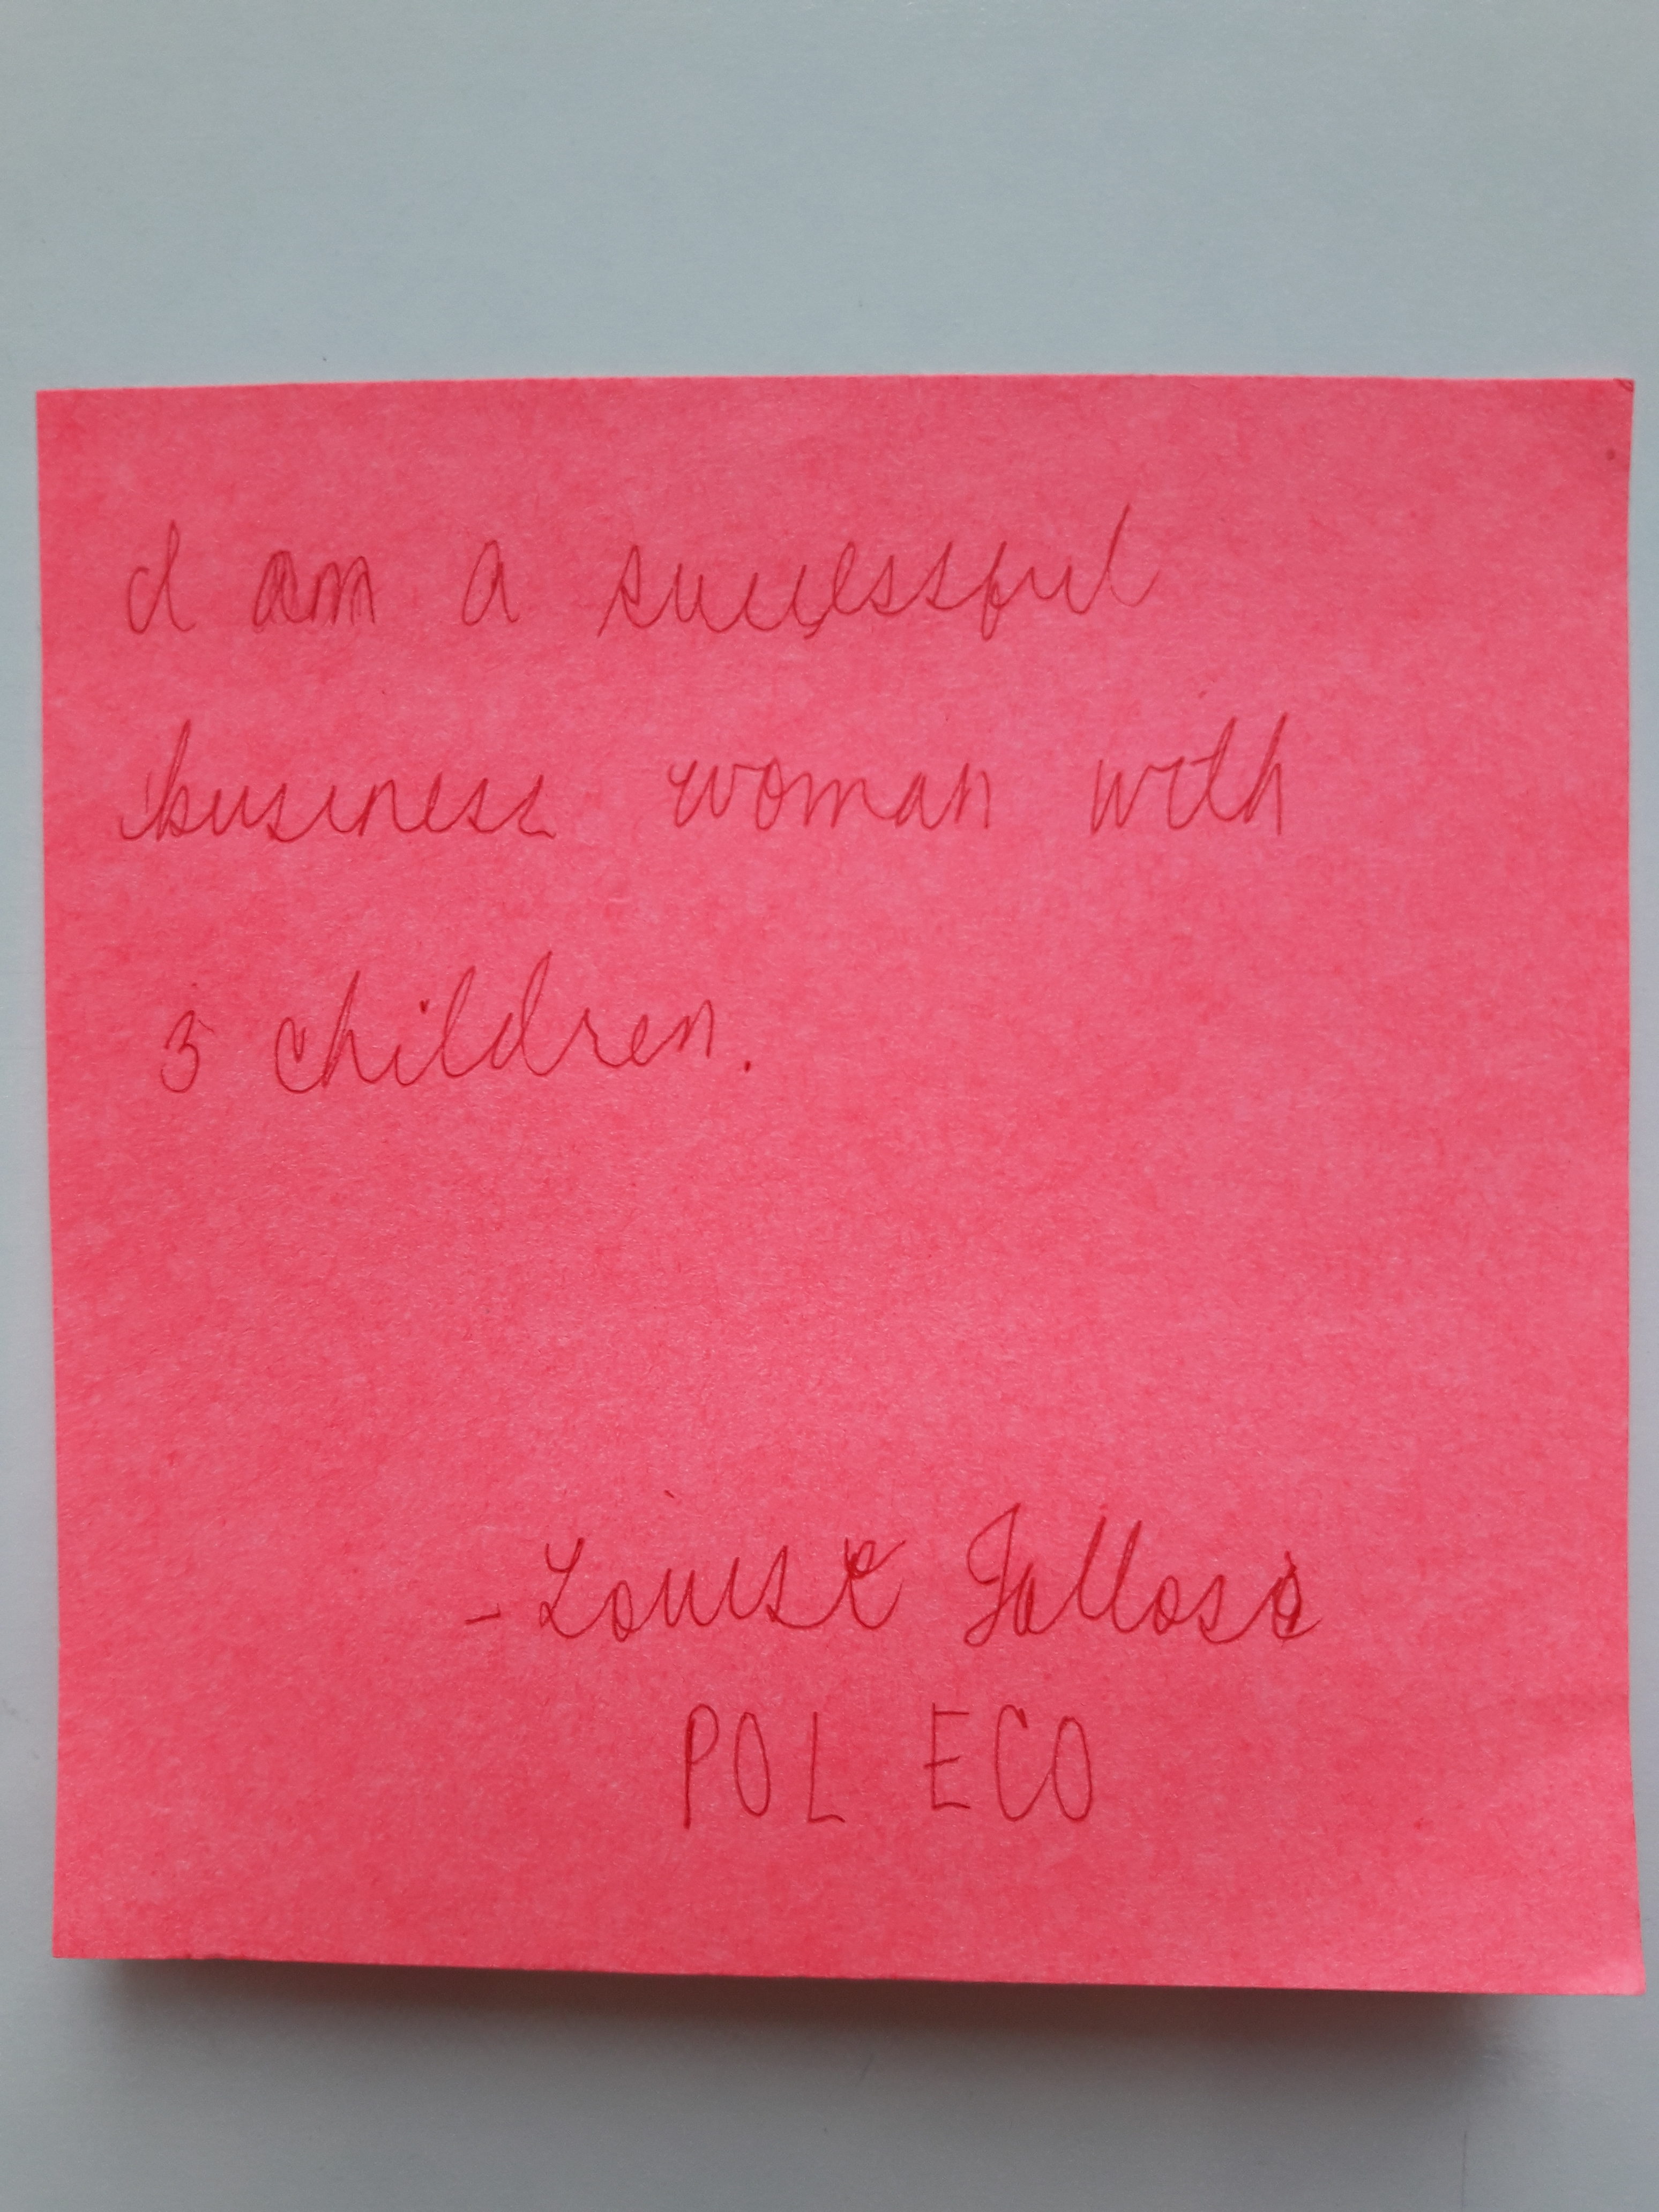 I am a successful
business woman with
children.
- Louise
POL ECO